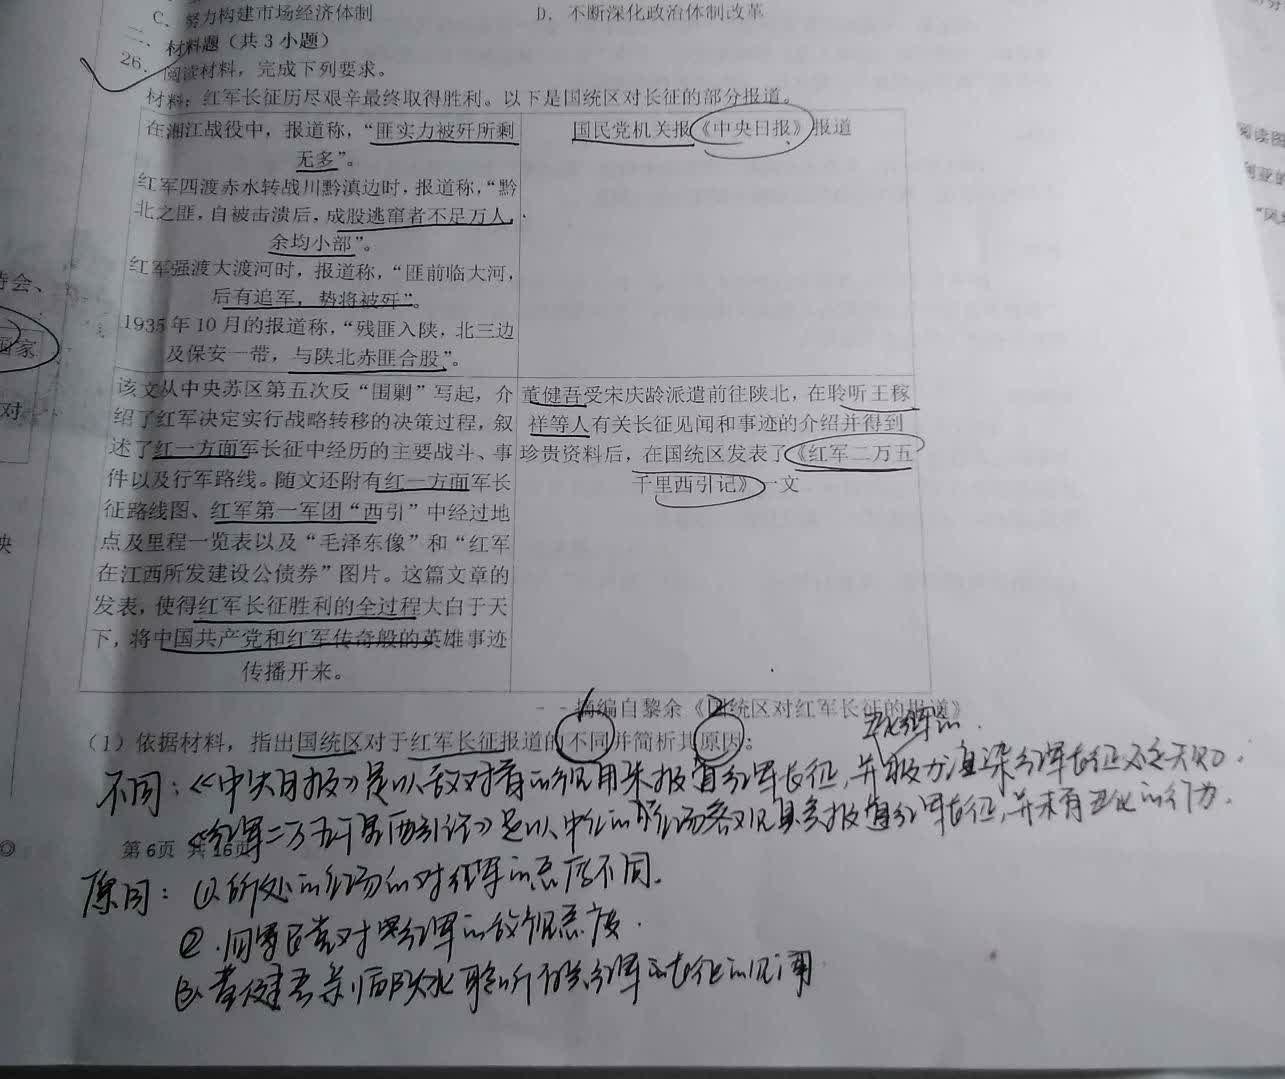 C. 努力构建市场经济体制
D. 不断深化政治体制改革
二、材料题（共3小题）
26. 阅读材料，完成下列要求。
材料：红军长征历尽艰辛最终取得胜利。以下是国统区对长征的部分报道。
在湘江战役中，报道称，“匪实力被歼所剩
无多”。
红军四渡赤水转战川黔滇边时，报道称，“黔
北之匪，自被击溃后，成股逃窜者不足万人，
余均小部”。
红军强渡大渡河时，报道称，“匪前临大河，
后有追军，势将被歼”。
1935年10月的报道称，“残匪入陕，北三边
及保安一带，与陕北赤匪合股”。
国民党机关报《中央日报》报道
该文从中央苏区第五次反“围剿”写起，介
绍了红军决定实行战略转移的决策过程，叙
述了红一方面军长征中经历的主要战斗、事
件以及行军路线。随文还附有红一方面军长
征路线图、红军第一军团“西引”中经过地
点及里程一览表以及“毛泽东像”和“红军
在江西所发建设公债券”图片。这篇文章的
发表，使得红军长征胜利的全过程大白于天
下，将中国共产党和红军传奇般的英雄事迹
传播开来。
董健吾受宋庆龄派遣前往陕北，在聆听王稼
祥等人有关长征见闻和事迹的介绍并得到
珍贵资料后，在国统区发表了《红军二万五
千里西引记》一文
--摘编自黎余《国统区对红军长征的报道》
（1）依据材料，指出国统区对于红军长征报道的不同并简析其原因；
丑化红军的
不同：《中央日报》是以敌对者的视角来报道红军长征，并极力渲染红军长征
《红军二万五千里西引记》是以中立的立场客观真实报道红军长征，并未有丑化的行为.
第6页 共16页
原因：①所处的立场和对红军的态度不同.
②.国民党对红军的敌视态度.
③.董健吾亲临陕北聆听有关红军长征的见闻
时会、
国家
对
映
阅读图
利亚的
“风